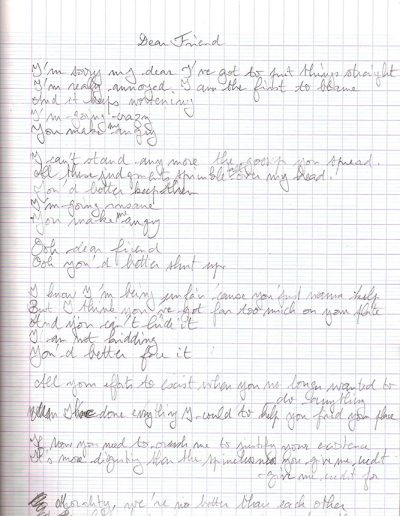 Dear Friend
I'm sorry my dear I've got to put things straight
I'm really annoyed. I am the first to blame
And it keeps worsening
I'm going crazy
You make me angry
I can't stand any more the gossip you spread.
All these judgements sprinkle over my head!
You'd better keep them
I'm going insane
You make me angry
Ooh dear friend
Ooh you'd better shut up
I know I'm being unfair 'cause you just wanna help
But I think you've got far too much on your plate
And you can't hide it
I am not kidding
You'd better face it
All your efforts to exist when you no longer wanted to
do anything
When I've done everything I could to help you find your place
If now you need to crush me to justify your existence
It's more dignity than the you give me credit
give me credit for
Morality, we're no better than each other